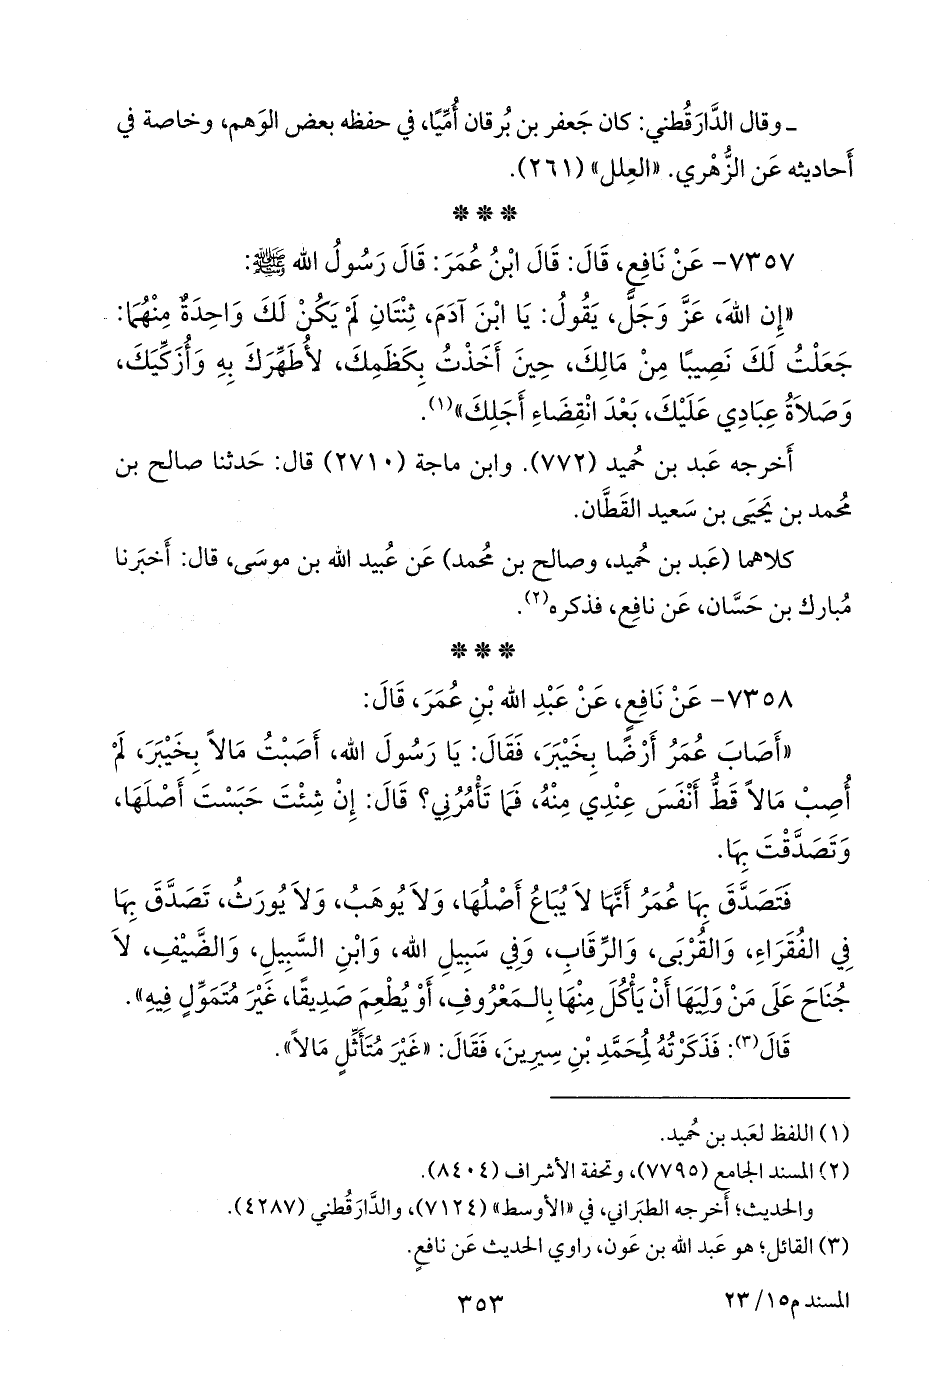 ـ وقال الدَّارَقُطني: كان جَعفر بن بُرقان أُمِّيًا، في حفظه بعض الوَهم، وخاصة في
أَحاديثه عَن الزُّهْري. «العِلل» (٢٦١).
* * *
٧٣٥٧- عَنْ نَافِعٍ، قَالَ: قَالَ ابْنُ عُمَرَ: قَالَ رَسُولُ الله ﷺ:
«إِن اللهَ، عَزَّ وَجَلَّ، يَقُولُ: يَا ابْنَ آدَمَ، ثِنْتَانِ لَمْ يَكُنْ لَكَ وَاحِدَةٌ مِنْهُمَا:
جَعَلْتُ لَكَ نَصِيبًا مِنْ مَالِكَ، حِينَ أَخَذْتُ بِكَظَمِكَ، لأُطَهِّرَكَ بِهِ وَأُزَكِّيَكَ،
وَصَلاَةُ عِبَادِي عَلَيْكَ، بَعْدَ انْقِضَاءِ أَجَلِكَ»(١).
أَخرجه عَبد بن حُميد (٧٧٢). وابن ماجة (٢٧١٠) قال: حَدثنا صالح بن
مُحمد بن يَحيَى بن سَعيد القَطَّان.
كلاهما (عَبد بن حُميد، وصالح بن مُحمد) عَن عُبيد الله بن موسَى، قال: أَخبَرنا
مُبارك بن حَسَّان، عَن نافِع، فذكره(٢).
* * *
٧٣٥٨- عَنْ نَافِعٍ، عَنْ عَبْدِ الله بْنِ عُمَرَ، قَالَ:
«أَصَابَ عُمَرُ أَرْضًا بِخَيْبَرَ، فَقَالَ: يَا رَسُولَ الله، أَصَبْتُ مَالاً بِخَيْبَرَ، لَمْ
أُصِبْ مَالاً قَطُّ أَنْفَسَ عِنْدِي مِنْهُ، فَمَا تَأْمُرُنِي؟ قَالَ: إِنْ شِئْتَ حَبَسْتَ أَصْلَهَا،
وَتَصَدَّقْتَ بِهَا.
فَتَصَدَّقَ بِهَا عُمَرُ أَنَّهَا لاَ يُبَاعُ أَصْلُهَا، وَلاَ يُوهَبُ، وَلاَ يُورَثُ، تَصَدَّقَ بِهَا
فِي الفُقَرَاءِ، وَالقُرْبَى، وَالرِّقَابِ، وَفِي سَبِيلِ الله، وَابْنِ السَّبِيلِ، وَالضَّيْفِ، لاَ
جُنَاحَ عَلَى مَنْ وَلِيَهَا أَنْ يَأْكُلَ مِنْهَا بِالـمَعْرُوفِ، أَوْ يُطْعِمَ صَدِيقًا، غَيْرَ مُتَمَوِّلٍ فِيهِ».
قَالَ(٣): فَذَكَرْتُهُ لِمُحَمَّدِ بْنِ سِيرِينَ، فَقَالَ: «غَيْرَ مُتَأَثِّلٍ مَالاً».
(١) اللفظ لعَبد بن حُميد.
(٢) المسند الجامع (٧٧٩٥)، وتحفة الأشراف (٨٤٠٤).
والحديث؛ أَخرجه الطبَراني، في «الأوسط» (٧١٢٤)، والدَّارَقُطني (٤٢٨٧).
(٣) القائل؛ هو عَبد الله بن عَون، راوي الحديث عَن نافعٍ.
المسند م١٥/ ٢٣
٣٥٣